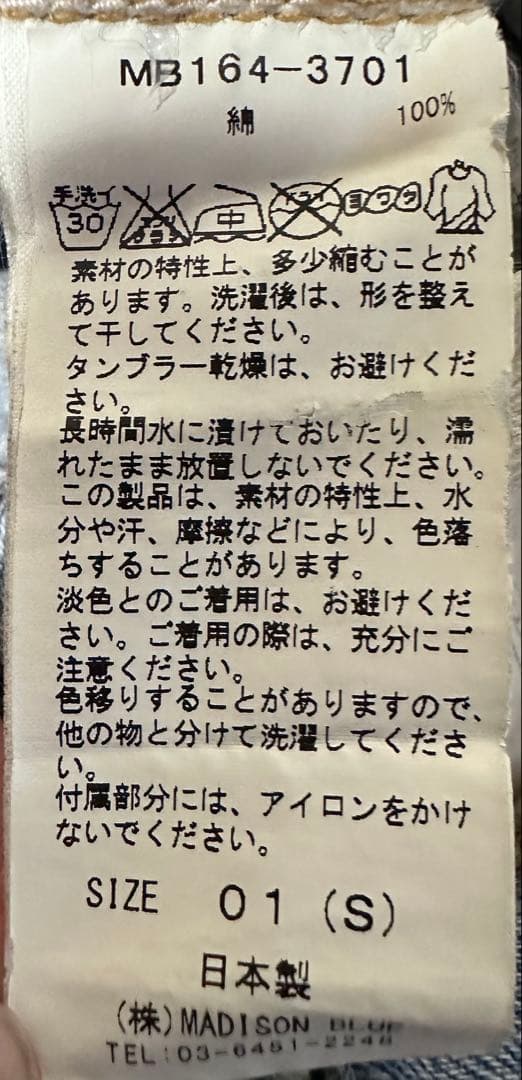 MB164-3701
綿 100%
手洗イ 30 エンソ サラシ 中 ドライ ヨワク
素材の特性上、多少縮むことが
あります。洗濯後は、形を整え
て干してください。
タンブラー乾燥は、お避けくだ
さい。
長時間水に漬けておいたり、濡
れたまま放置しないでください。
この製品は、素材の特性上、水
分や汗、摩擦などにより、色落
ちすることがあります。
淡色とのご着用は、お避けくだ
さい。ご着用の際は、充分にご
注意ください。
色移りすることがありますので、
他の物と分けて洗濯してくださ
い。
付属部分には、アイロンをかけ
ないでください。
SIZE 01 (S)
日本製
(株)MADISON BLUE
TEL:03-6451-2248